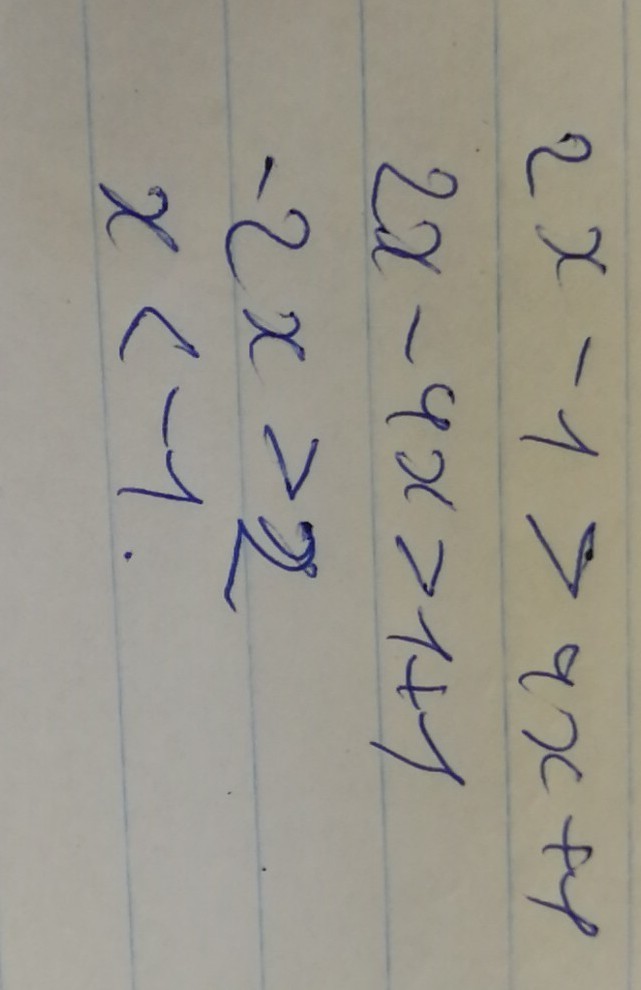 2x - 1 > 4x + 1
2x - 4x > 1 + 1
-2x > 2
x < -1.